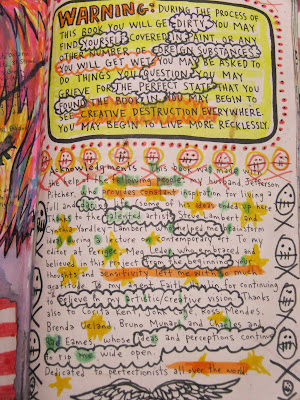 WARNING: DURING THE PROCESS OF
THIS BOOK YOU WILL GET DIRTY. YOU MAY
FIND YOURSELF COVERED IN PAINT, OR ANY
OTHER NUMBER OF FOREIGN SUBSTANCES.
YOU WILL GET WET. YOU MAY BE ASKED TO
DO THINGS YOU QUESTION. YOU MAY
GRIEVE FOR THE PERFECT STATE THAT YOU
FOUND THE BOOK IN. YOU MAY BEGIN TO
SEE CREATIVE DESTRUCTION EVERYWHERE.
YOU MAY BEGIN TO LIVE MORE RECKLESSLY.
Acknowledgments This book was made with
the help of the following people: my husband Jefferson
Pitcher, who provides constant inspiration for living a
full and some of his ideas ended up here
to the talented artists Steve Lambert and
Cynthia Yardley Lambert who helped me brainstorm
ideas future contemporary art. To my
editor at Perigee, Meg who embraced and
believed in this project from the beginning, your
thoughts and sensitivity left me with so much
gratitude. To my agent Faith for continuing
believe in my artistic/creative vision. Thanks
also to Corita Kent, John Ross Mendes,
Brenda Ueland, Bruno Munari and Charles and
Ray Eames, whose ideas and perceptions continue
to rip me wide open.
Dedicated to perfectionists all over the world.